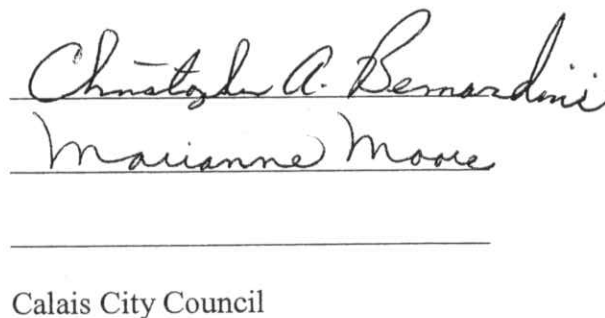 Christopher A. Bernardini
Marianne Moore
Calais City Council